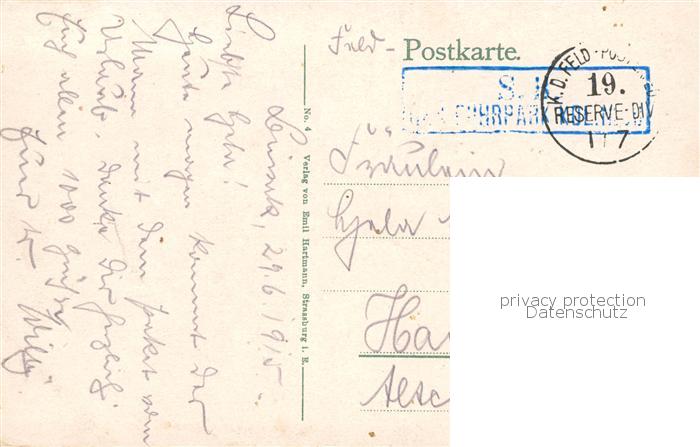 Feld-Postkarte.
S.B.
FUHRPARK
K.D. FELD-POST
19.
RESERVE-DIV
117
No. 4 Verlag von Emil Hartmann, Strassburg i. E.
29.6.1915.
Liebste Hela!
Heute morgen kommt der
Mann mit dem Paket vom
Urlaub. Danke Dir herzlich
Euch allen 1000 Grüße
Euer tr. Willy.
Fräulein
Hela
Ha
privacy protection
Datenschutz